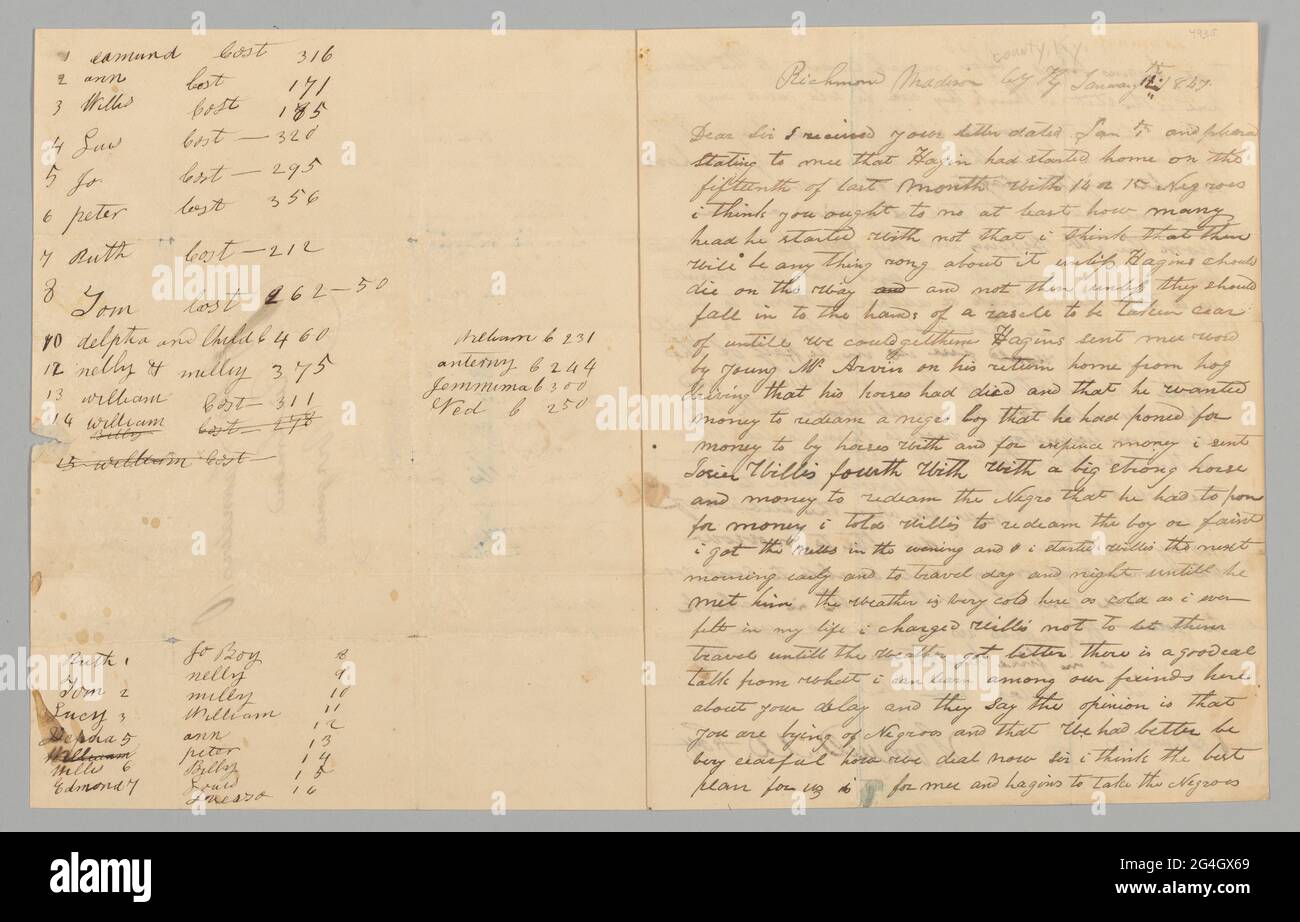 1 edmund Cost 316
2 ann Cost 171
3 Willis Cost 185
4 Luw Cost — 320
5 Jo. Cost — 295
6 peter Cost 356
7 Ruth Cost — 212
8 Tom Cost 262 — 50
10 delpha and Child C 460
12 nelly & milley 375
13 william Cost — 311
14 william
Billy Cost — 178
15 william Cost —
William C 231
anterny C 244
Jemmima C 300
Ned C 250
Ruth 1
Tom 2
Lucy 3
Delpha 5
William
Willis 6
Edmond 7
Jo Boy 8
nelly 9
milley 10
William 11
ann 12
peter 13
Billy 14
15
16
county Ky
4935
Richmond Madison Cty Ky January 1847
Dear Sir I received your letter dated Jan and
Stating to mee that Hagin had started home on the
fifteenth of last month with 14 or 15 Negroes
i think you ought to no at least how many
head he started with not that i think that there
will be any thing rong about it unless Hagins should
die on the way and and not then unless they should
fall in to the hands of a rascle to be taken cear
of untill we could get them Hagins sent mee word
by young Mr Arvin on his return home from hog
driving that his horses had died and that he wanted
money to redeam a negro boy that he had poned for
money to by horses with and for expence money i sent
Willis fourth with with a big strong horse
and money to redeam the Negro that he had to pon
for money i told Willis to redeam the boy or
i got the news in the evening and i started willis the next
morning early and to travel day and night untill he
met him the weather is very cold here as cold as i ever
felt in my life i charged Willis not to let them
travel untill the weather got better there is a good eal
talk from what i can learn among our frinds here
about your delay and they say the opinion is that
you are bying of Negroes and that we had better be
very cearful how we deal now Sir i think the best
plan for us is for mee and hagins to take the Negroes
alamy
Image ID: 2G4GX69
www.alamy.com